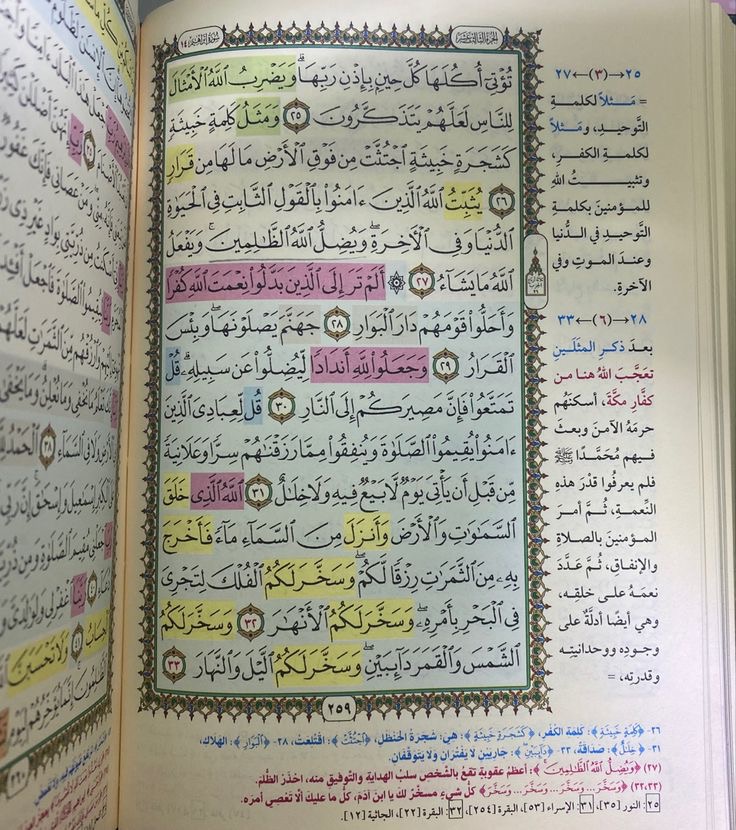 سورة إبراهيم ١٤
الجزء الثالث عشر
تُؤْتِىٓ أُكُلَهَا كُلَّ حِينٍۭ بِإِذْنِ رَبِّهَا ۗ وَيَضْرِبُ ٱللَّهُ ٱلْأَمْثَالَ
لِلنَّاسِ لَعَلَّهُمْ يَتَذَكَّرُونَ ٢٥ وَمَثَلُ كَلِمَةٍ خَبِيثَةٍ
كَشَجَرَةٍ خَبِيثَةٍ ٱجْتُثَّتْ مِن فَوْقِ ٱلْأَرْضِ مَا لَهَا مِن قَرَارٍ
٢٦ يُثَبِّتُ ٱللَّهُ ٱلَّذِينَ ءَامَنُوا۟ بِٱلْقَوْلِ ٱلثَّابِتِ فِى ٱلْحَيَوٰةِ
ٱلدُّنْيَا وَفِى ٱلْءَاخِرَةِ ۖ وَيُضِلُّ ٱللَّهُ ٱلظَّٰلِمِينَ ۚ وَيَفْعَلُ
ٱللَّهُ مَا يَشَآءُ ٢٧ ۞ أَلَمْ تَرَ إِلَى ٱلَّذِينَ بَدَّلُوا۟ نِعْمَتَ ٱللَّهِ كُفْرًا
وَأَحَلُّوا۟ قَوْمَهُمْ دَارَ ٱلْبَوَارِ ٢٨ جَهَنَّمَ يَصْلَوْنَهَا ۖ وَبِئْسَ
ٱلْقَرَارُ ٢٩ وَجَعَلُوا۟ لِلَّهِ أَندَادًا لِّيُضِلُّوا۟ عَن سَبِيلِهِۦ ۗ قُلْ
تَمَتَّعُوا۟ فَإِنَّ مَصِيرَكُمْ إِلَى ٱلنَّارِ ٣٠ قُل لِّعِبَادِىَ ٱلَّذِينَ
ءَامَنُوا۟ يُقِيمُوا۟ ٱلصَّلَوٰةَ وَيُنفِقُوا۟ مِمَّا رَزَقْنَٰهُمْ سِرًّا وَعَلَانِيَةً
مِّن قَبْلِ أَن يَأْتِىَ يَوْمٌ لَّا بَيْعٌ فِيهِ وَلَا خِلَٰلٌ ٣١ ٱللَّهُ ٱلَّذِى خَلَقَ
ٱلسَّمَٰوَٰتِ وَٱلْأَرْضَ وَأَنزَلَ مِنَ ٱلسَّمَآءِ مَآءً فَأَخْرَجَ
بِهِۦ مِنَ ٱلثَّمَرَٰتِ رِزْقًا لَّكُمْ ۖ وَسَخَّرَ لَكُمُ ٱلْفُلْكَ لِتَجْرِىَ
فِى ٱلْبَحْرِ بِأَمْرِهِۦ ۖ وَسَخَّرَ لَكُمُ ٱلْأَنْهَٰرَ ٣٢ وَسَخَّرَ لَكُمُ
ٱلشَّمْسَ وَٱلْقَمَرَ دَآئِبَيْنِ ۖ وَسَخَّرَ لَكُمُ ٱلَّيْلَ وَٱلنَّهَارَ ٣٣
٢٥٩
٢٥→(٣)←٢٧
= مَثلاً لكلمةِ
التَّوحيدِ، ومَثلاً
لكلمةِ الكفرِ،
وتثبيتُ اللهِ
للمؤمنينَ بكلمةِ
التَّوحيدِ في الدُّنيا
وعندَ الموتِ وفي
الآخرةِ.
٢٨→(٦)←٣٣
بعدَ ذكرِ المثَلَينِ
تعجَّبَ اللهُ هنا من
كفَّارِ مكَّةَ، أسكنَهُم
حرمَهُ الآمنَ وبعثَ
فيهم مُحَمَّدًا ﷺ
فلم يعرفُوا قدْرَ هذه
النِّعمةِ، ثُمَّ أمرَ
المؤمنينَ بالصلاةِ
والإنفاقِ، ثُمَّ عَدَّدَ
نعمَهُ على خلقِه،
وهي أيضًا أدلَّةٌ على
وجودِه ووحدانيتِه
وقدرتِه، =
٢٦- ﴿كَلِمَةٍ خَبِيثَةٍ﴾: كلمة الكُفْرِ، ﴿كَشَجَرَةٍ خَبِيثَةٍ﴾: هيَ: شجرةُ الحنظلِ، ﴿ٱجْتُثَّتْ﴾: اقتُلعتْ، ٢٨- ﴿ٱلْبَوَارِ﴾: الهلاكِ،
٣١- ﴿خِلَٰلٌ﴾: صَدَاقَةٌ، ٣٣- ﴿دَآئِبَيْنِ﴾: جاريَيْنِ لا يفتُرانِ ولا يتوقَّفانِ.
(٢٧) ﴿وَيُضِلُّ ٱللَّهُ ٱلظَّٰلِمِينَ﴾: أعظمُ عقوبةٍ تقعُ بالشخصِ سلبُ الهدايةِ والتوفيقِ منه، احْذَرِ الظُّلمَ.
(٣٢،٣٣) ﴿وَسَخَّرَ... وَسَخَّرَ... وَسَخَّرَ... وَسَخَّرَ﴾ كلُّ شيءٍ مسخَّرٌ لكَ يا ابنَ آدمَ، كلُّ ما عليكَ ألَّا تعْصِيَ أمرَه.
٢٥: النور [٣٥]، ٣١: الإسراء [٥٣]، البقرة [٢٥٤]، ٣٢: البقرة [٢٢]، الجاثية [١٢].